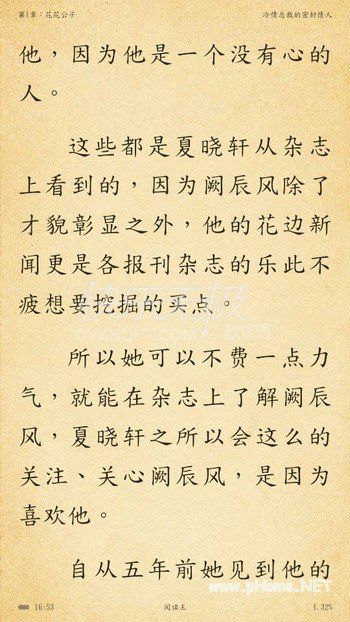 第1章：花花公子 冷情总裁的密封情人
他，因为他是一个没有心的
人。
这些都是夏晓轩从杂志
上看到的，因为阙辰风除了
才貌彰显之外，他的花边新
闻更是各报刊杂志的乐此不
疲想要挖掘的买点。
所以她可以不费一点力
气，就能在杂志上了解阙辰
风，夏晓轩之所以会这么的
关注、关心阙辰风，是因为
喜欢他。
自从五年前她见到他的
www.pHome.NET
16:53 阅读王 1.32%